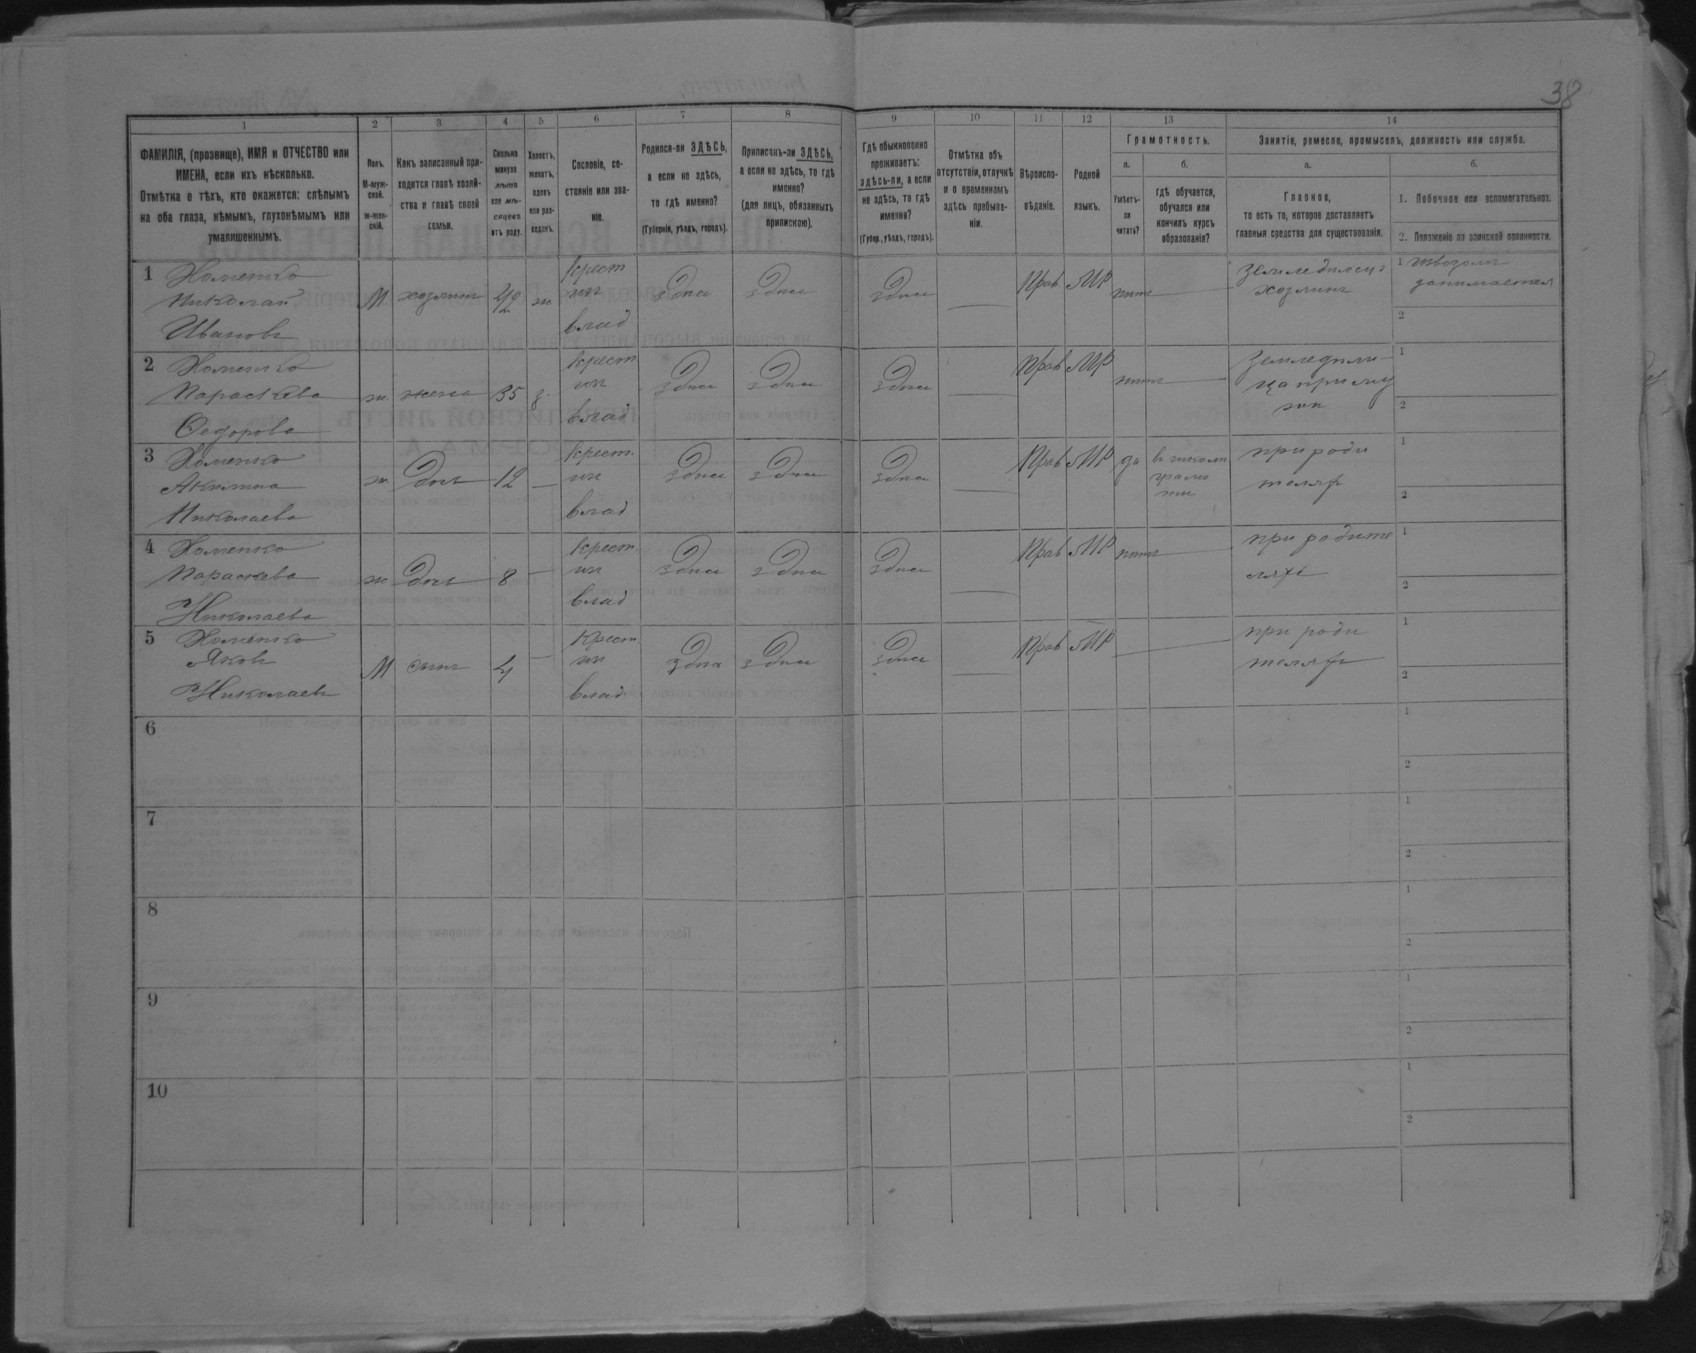 38
1 2 3 4 5 6 7 8 9 10 11 12 13 14
ФАМИЛІЯ, (прозвище), ИМЯ и ОТЧЕСТВО или
ИМЕНА, если ихъ нѣсколько.
Отмѣтка о тѣхъ, кто окажется: слѣпымъ
на оба глаза, нѣмымъ, глухонѣмымъ или
умалишеннымъ.
Полъ.
М-муж-
ской.
ж-жен-
скій.
Какъ записанный при-
ходится главѣ хозяй-
ства и главѣ своей
семьи.
Сколько
минуло
лѣтъ
или мѣ-
сяцевъ
отъ роду.
Холостъ,
женатъ,
вдовъ
или раз-
веденъ.
Сословіе, со-
стояніе или зва-
ніе.
Родился-ли ЗДѢСЬ,
а если не здѣсь,
то гдѣ именно?
(Губернія, уѣздъ, городъ).
Приписанъ-ли ЗДѢСЬ,
а если не здѣсь, то гдѣ
именно?
(для лицъ, обязанныхъ
припискою).
Гдѣ обыкновенно
проживаетъ:
здѣсь-ли, а если
не здѣсь, то гдѣ
именно?
(Губер., уѣздъ, городъ).
Отмѣтка объ
отсутствіи, отлучкѣ
и о временномъ
здѣсь пребыва-
ніи.
Вѣроиспо-
вѣданіе.
Родной
языкъ.
Грамотность.
а. б.
Умѣетъ-
ли
читать?
гдѣ обучается,
обучался или
кончилъ курсъ
образованія?
Занятіе, ремесло, промыселъ, должность или служба.
а. б.
Главное,
то есть то, которое доставляетъ
главныя средства для существованія.
1. Побочное или вспомогательное.
2. Положеніе по воинской повинности.
1 Хоменко
Николай
Ивановъ
М хозяинъ 42 ж
крест
изъ
влад
здѣсь здѣсь здѣсь Прав МР нѣтъ
Земледѣлецъ
хозяинъ
1 извозомъ
занимается
2
2 Хоменко
Параскева
Федорова
ж жена 35 з
крест
изъ
влад
здѣсь здѣсь здѣсь Прав МР нѣтъ
Земледѣли-
ца при му
жѣ
1
2
3 Хоменко
Акилина
Николаева
ж дочь 12
крест
изъ
влад
здѣсь здѣсь здѣсь Прав МР да
в школѣ
грамо
ты
при роди
теляхъ
1
2
4 Хоменко
Параскева
Николаева
ж дочь 8
крест
изъ
влад
здѣсь здѣсь здѣсь Прав МР нѣтъ
при родите
ляхъ
1
2
5 Хоменко
Яковъ
Николаевъ
М сынъ 4
крест
изъ
влад
здѣсь здѣсь здѣсь Прав МР
при роди
теляхъ
1
2
6
1
2
7
1
2
8
1
2
9
1
2
10
1
2